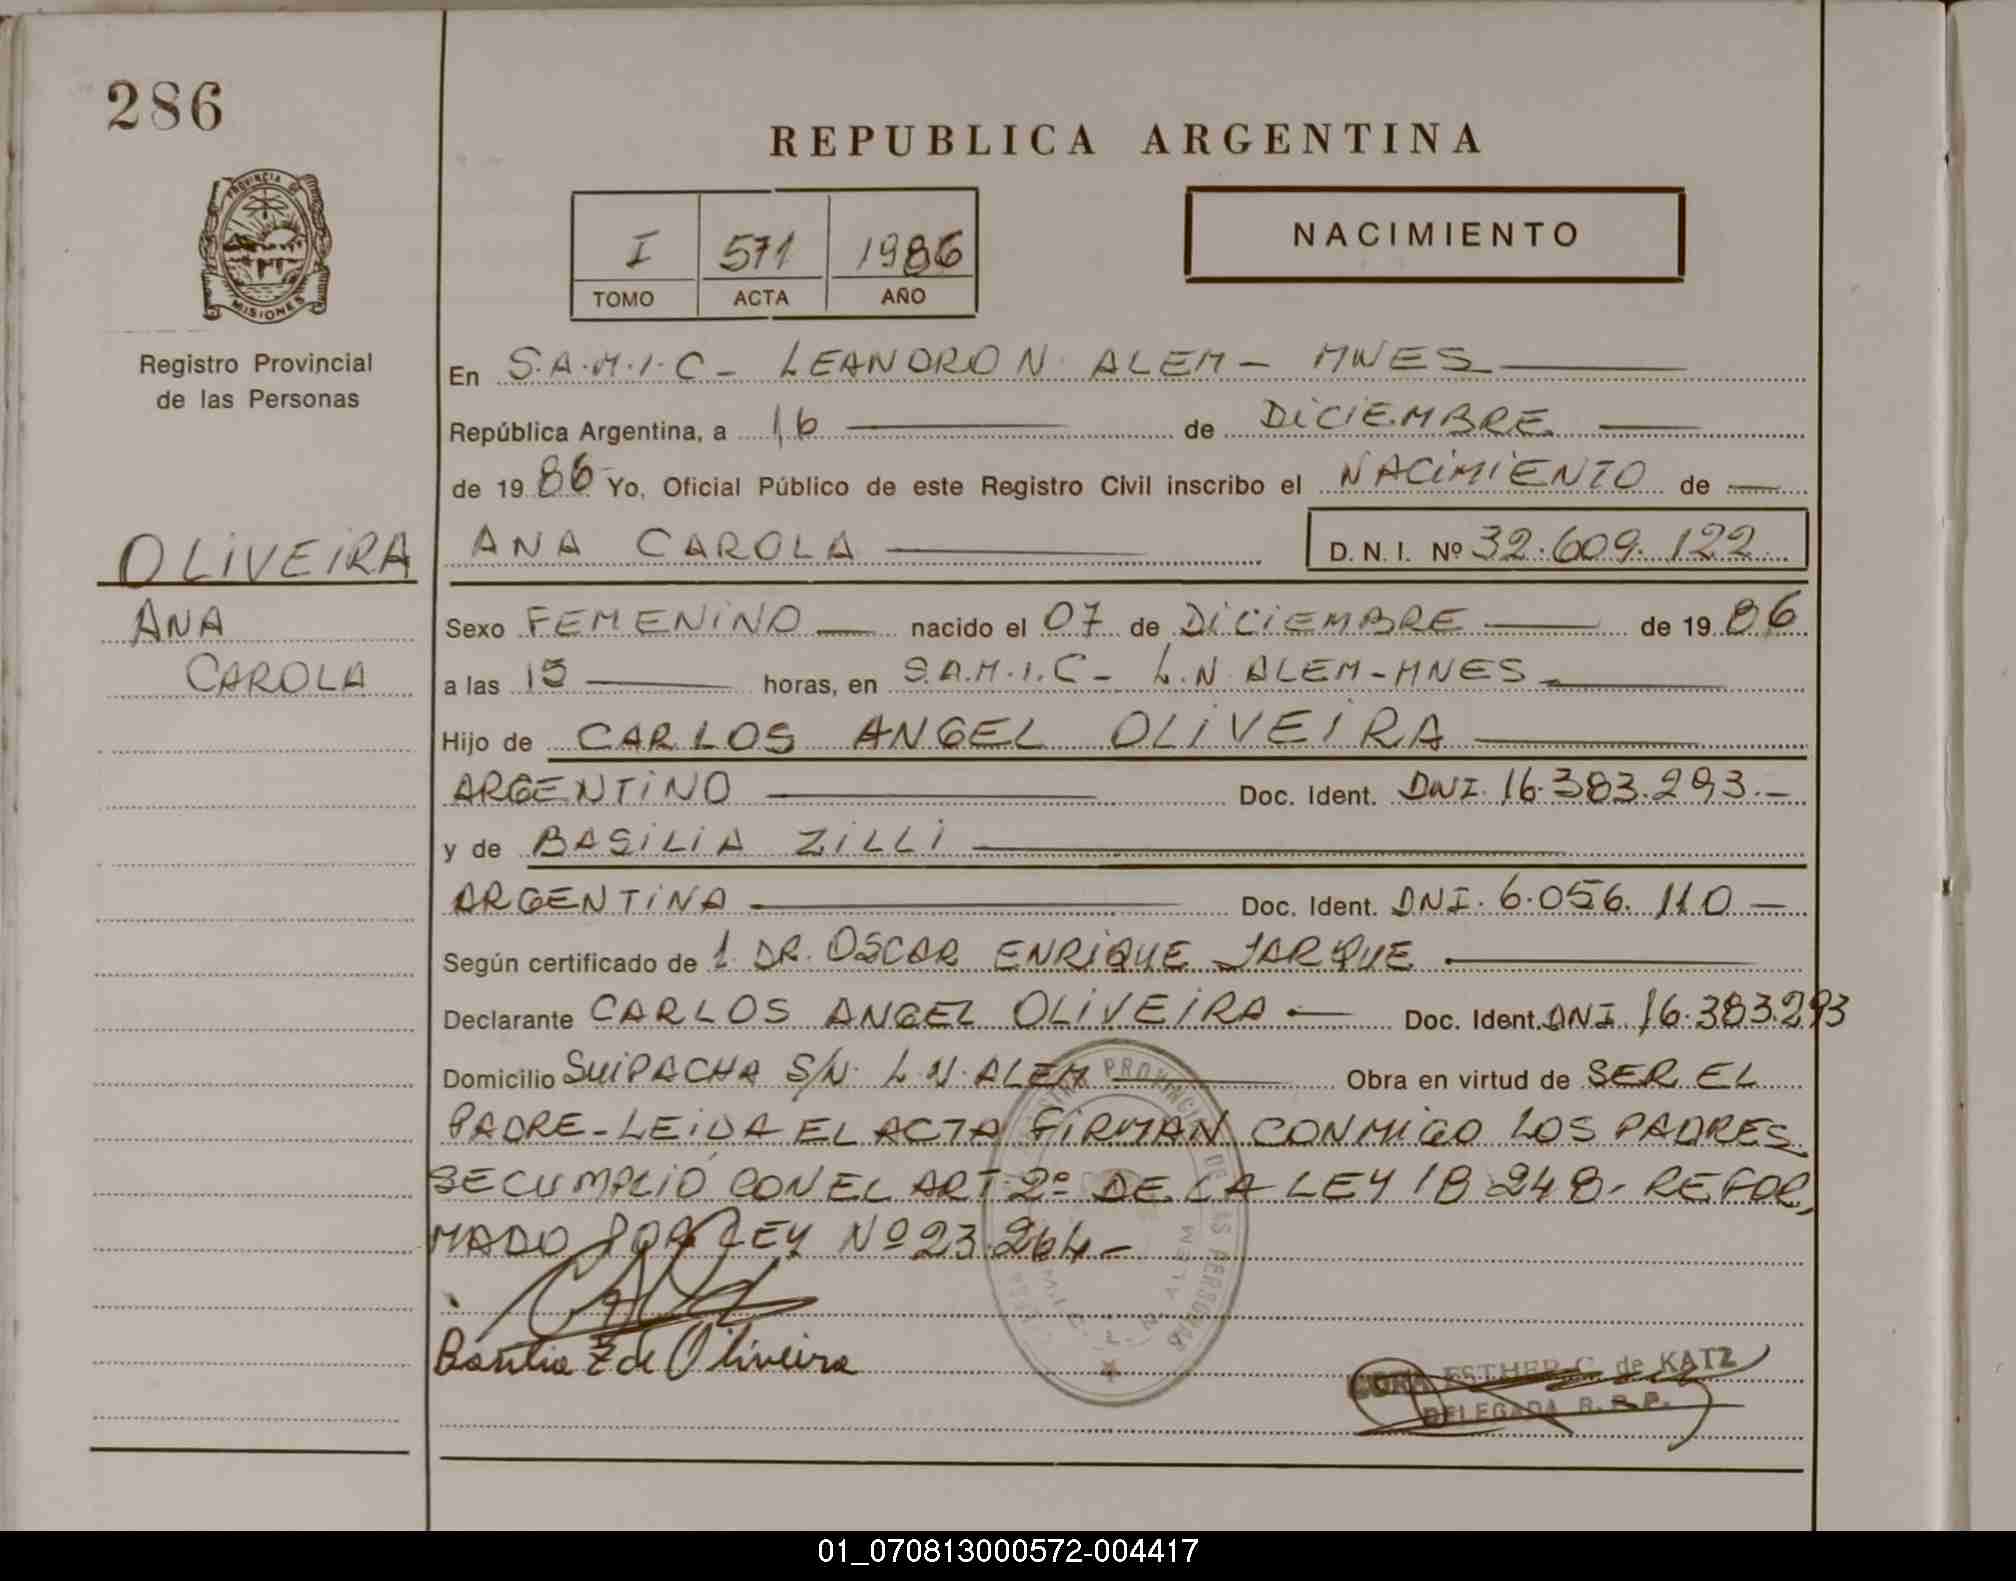 286
REPUBLICA ARGENTINA
PROVINCIA DE
MISIONES
I 571 1986
TOMO ACTA AÑO
NACIMIENTO
Registro Provincial
de las Personas
En S.A.M.I.C - LEANDRO N. ALEM - MNES
República Argentina, a 16 de DICIEMBRE
de 1986 Yo, Oficial Público de este Registro Civil inscribo el NACIMIENTO de
OLIVEIRA
ANA CAROLA D. N. I. Nº 32.609.122
ANA
CAROLA
Sexo FEMENINO nacido el 07 de DICIEMBRE de 1986
a las 15 horas, en S.A.M.I.C - L.N. ALEM - MNES
Hijo de CARLOS ANGEL OLIVEIRA
ARGENTINO Doc. Ident. DNI. 16.383.293.-
y de BASILIA ZILLI
ARGENTINA Doc. Ident. DNI. 6.056.110 -
Según certificado de 1. DR. OSCAR ENRIQUE JARQUE
Declarante CARLOS ANGEL OLIVEIRA - Doc. Ident. DNI. 16.383.293
Domicilio SUIPACHA S/N. L.N. ALEM Obra en virtud de SER EL
PADRE - LEIDA EL ACTA FIRMAN CONMIGO LOS PADRES
SE CUMPLIO CON EL ART. 2º DE LA LEY 18.248 - REFOR
MADO POR LEY Nº 23.264 -
Basilia Z de Oliveira
ESTHER C. de KATZ
DELEGADA R. P. P.
PROVINCIAL DE LAS PERSONAS
L. N. ALEM
01_070813000572-004417